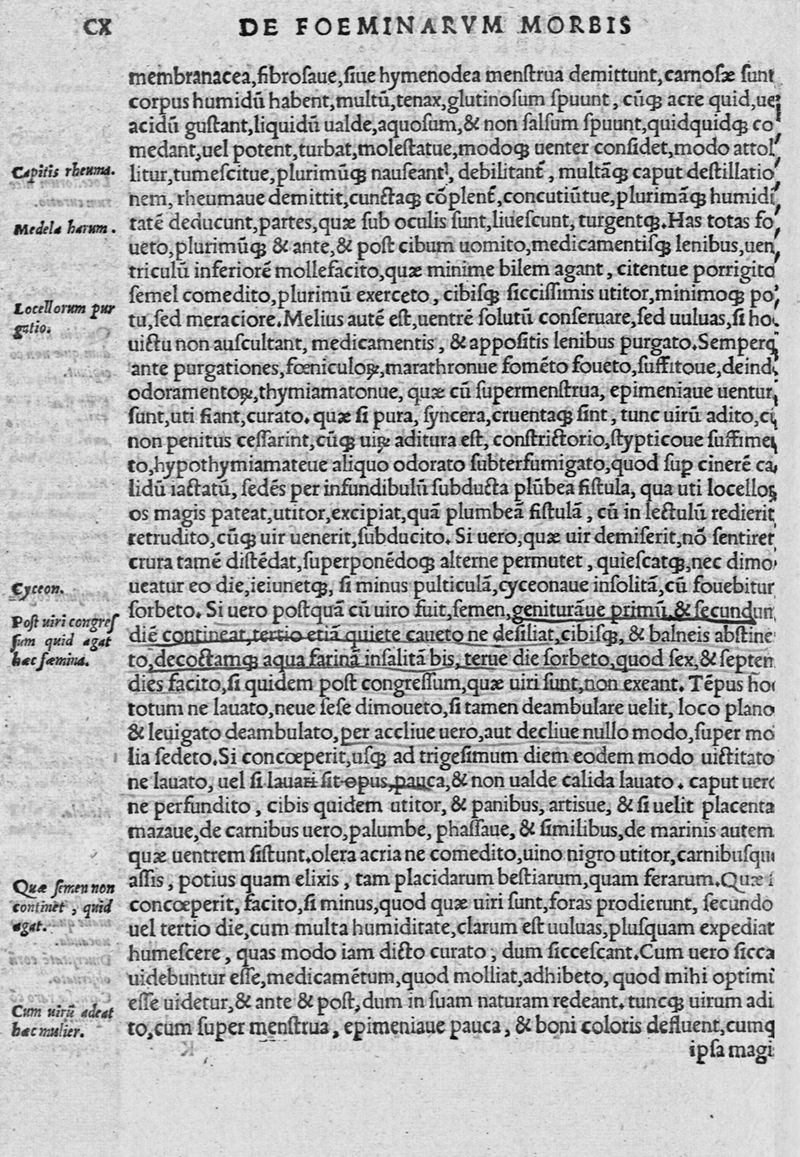 CX DE FOEMINARVM MORBIS
membranacea,fibroſaue,ſiue hymenodea menſtrua demittunt,carnoſæ ſunt
corpus humidū habent,multū,tenax,glutinoſum ſpuunt, cūꝙ acre quid,ue
acidū guſtant,liquidū ualde,aquoſum,& non ſalſum ſpuunt,quidquidꝙ co
medant,uel potent,turbat,moleſtatue,modoꝙ uenter conſidet,modo attol
Capitis rheuma.
litur,tumeſcitue,plurimūꝙ nauſeant, debilitant, multāꝙ caput deſtillatio
nem, rheumaue demittit,cunctaꝙ cōplent,concutiūtue,plurimāꝙ humidi
Medela harum.
tatē deducunt,partes,quæ ſub oculis ſunt,liueſcunt, turgentꝙ.Has totas fo
ueto,plurimūꝙ & ante,& poſt cibum uomito,medicamentiſꝙ lenibus,uen
triculū inferiorē mollefacito,quæ minime bilem agant, citentue porrigito
Locellorum pur
gatio.
ſemel comedito,plurimū exerceto, cibiſꝙ ſicciſſimis utitor,minimoꝙ po
tu,ſed meraciore.Melius autē eſt,uentrē ſolutū conſeruare,ſed uuluas,ſi ho
uictu non auſcultant, medicamentis, & appoſitis lenibus purgato.Semperꝙ
ante purgationes,fœniculoꝝ,marathronue fomēto foueto,ſuffitoue,deind
odoramentoꝝ,thymiamatonue, quæ cū ſupermenſtrua, epimeniaue uentur
ſunt,uti fiant,curato. quæ ſi pura, ſyncera,cruentaꝙ ſint, tunc uirū adito,
non penitus ceſſarint,cūꝙ uiꝝ aditura eſt, conſtrictorio,ſtypticoue ſuffime
to,hypothymiamateue aliquo odorato ſubterfumigato,quod ſup cinerē ca
lidū iactatū, ſedēs per infundibulū ſubducta plūbea fiſtula, qua uti locellos
os magis pateat,utitor,excipiat,quā plumbeā fiſtulā, cū in lectulū redierit
retrudito,cūꝙ uir uenerit,ſubducito. Si uero,quæ uir demiſerit,nō ſentiret
crura tamē diſtēdat,ſuperponēdoꝙ alterne permutet, quieſcatꝙ,nec dimo
Cyceon.
ueatur eo die,ieiunetꝙ, ſi minus pulticulā,cyceonaue inſolitā,cū fouebitur
Poſt uiri congreſ
ſum quid agat
hæc fœmina.
ſorbeto. Si uero poſtquā cū uiro fuit,ſemen,geniturāue primū,& ſecundun
diē contineat,tertio etiā quiete caueto ne deſiliat,cibiſꝙ, & balneis abſtine
to,decoctamꝙ aqua farinā inſalitā bis, terue die ſorbeto,quod ſex,& ſeptem
dies facito,ſi quidem poſt congreſſum,quæ uiri ſunt,non exeant. Tēpus ho
totum ne lauato,neue ſeſe dimoueto,ſi tamen deambulare uelit, loco plano
& leuigato deambulato,per accliue uero,aut decliue nullo modo,ſuper mo
lia ſedeto.Si concœperit,uſꝙ ad trigeſimum diem eodem modo uictitato
ne lauato, uel ſi lauari ſit opus,pauca,& non ualde calida lauato. caput uero
ne perfundito, cibis quidem utitor, & panibus, artisue, & ſi uelit placenta
mazaue,de carnibus uero,palumbe, phaſſaue, & ſimilibus,de marinis autem
quæ uentrem ſiſtunt.olera acria ne comedito,uino nigro utitor,carnibuſqu
Quæ ſemen non
continet, quid
agat.
aſſis, potius quam elixis, tam placidarum beſtiarum,quam ferarum.Quæ
concœperit, facito,ſi minus,quod quæ uiri ſunt,foras prodierunt, ſecundo
uel tertio die,cum multa humiditate,clarum eſt uuluas,pluſquam expediat
humeſcere, quas modo iam dicto curato, dum ſicceſcant.Cum uero ſicca
uidebuntur eſſe,medicamētum,quod molliat,adhibeto, quod mihi optimi
Cum uirū adeat
hæc mulier.
eſſe uidetur,& ante & poſt,dum in ſuam naturam redeant. tuncꝙ uirum adi
to,cum ſuper menſtrua, epimeniaue pauca, & boni coloris defluent,cumꝙ
ipſa magi